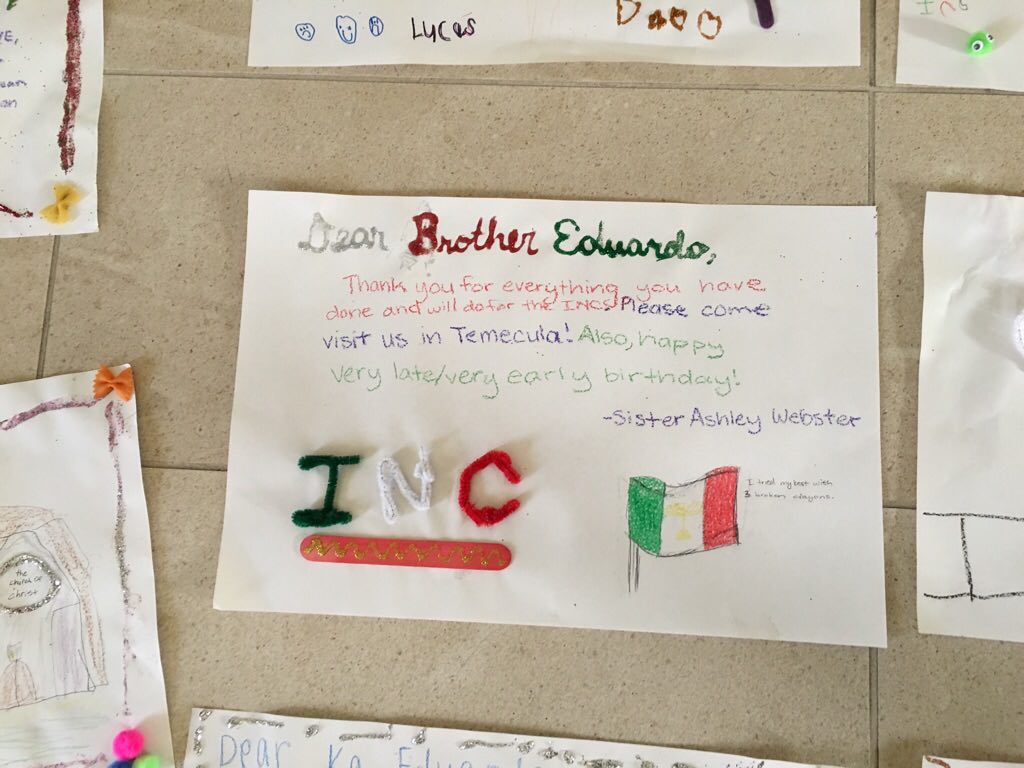 Lucas
INC
Dear Brother Eduardo,
Thank you for everything you have
done and will do for the INC. Please come
visit us in Temecula! Also, happy
very late/very early birthday!
-Sister Ashley Webster
INC
I tried my best with
3 broken crayons.
the
church of
Christ
I
Dear Ka Eduardo